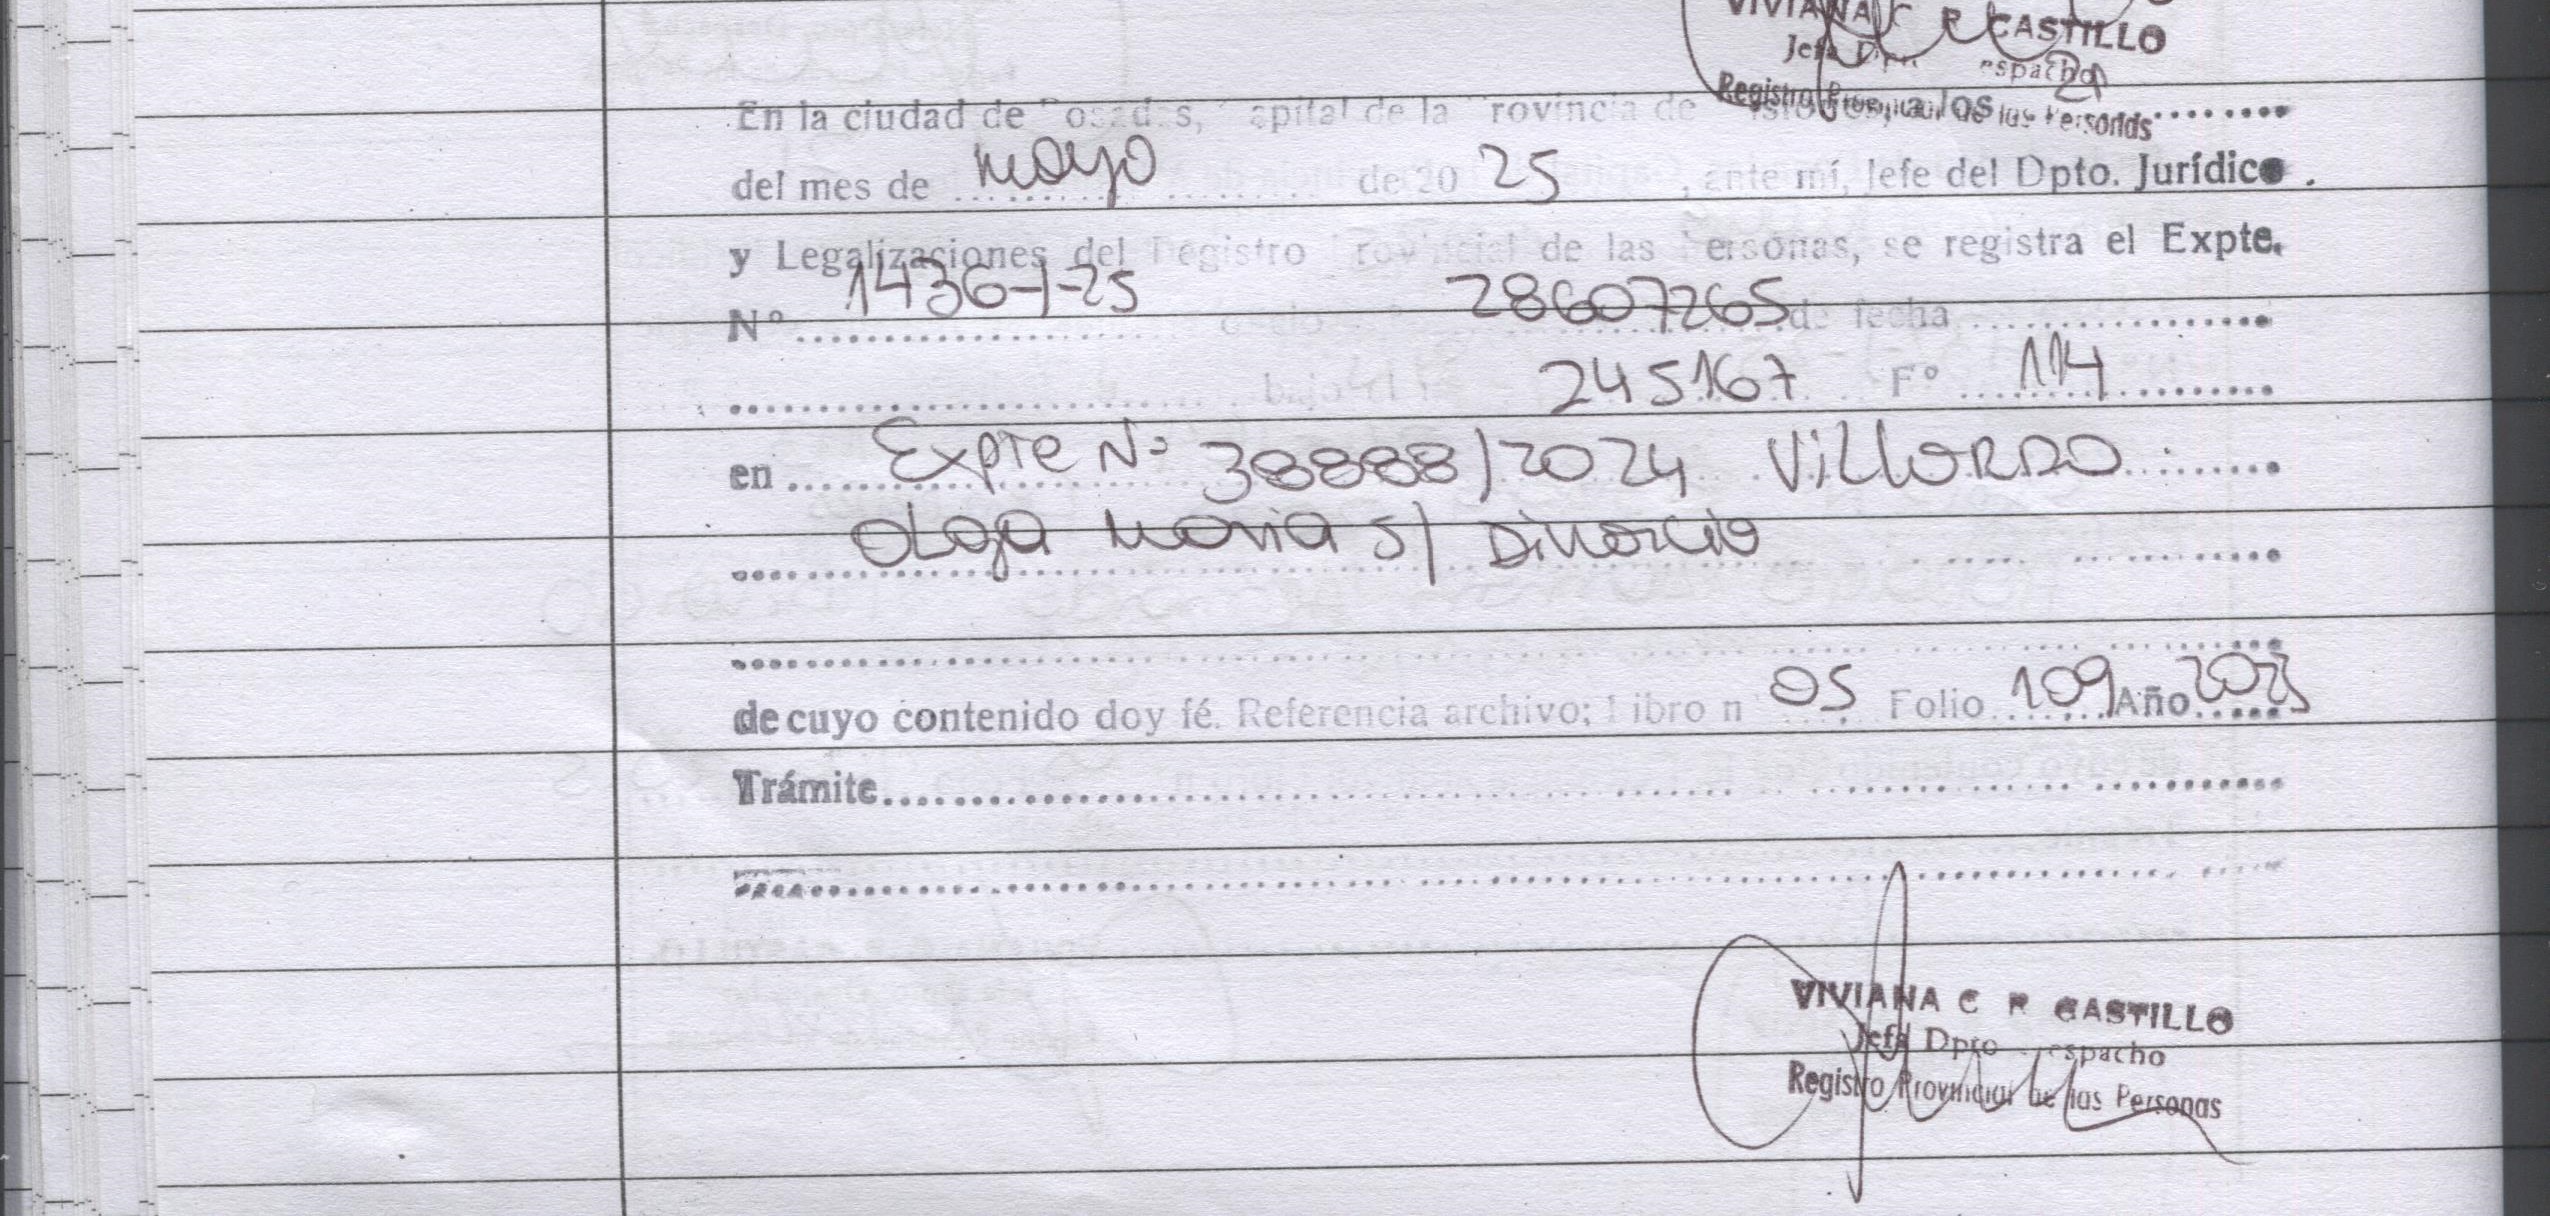 VIVIANA C R CASTILLO
Jefa Dpto espacho
Registro Provincial de las Personas
En la ciudad de Posadas, Capital de la Provincia de Misiones, a los 21
del mes de mayo de 20 25, ante mí, Jefe del Dpto. Jurídico.
y Legalizaciones del Registro Provincial de las Personas, se registra el Expte.
Nº 1436-1-25 28607265 de fecha
bajo el 245167 Fº 114
en Expte Nº 38888/2024 Villordo
Olga Maria S/ Divorcio
de cuyo contenido doy fé. Referencia archivo; Libro n 05 Folio 109 Año 2025
Trámite
VIVIANA C R CASTILLO
Jefa Dpto espacho
Registro Provincial de las Personas